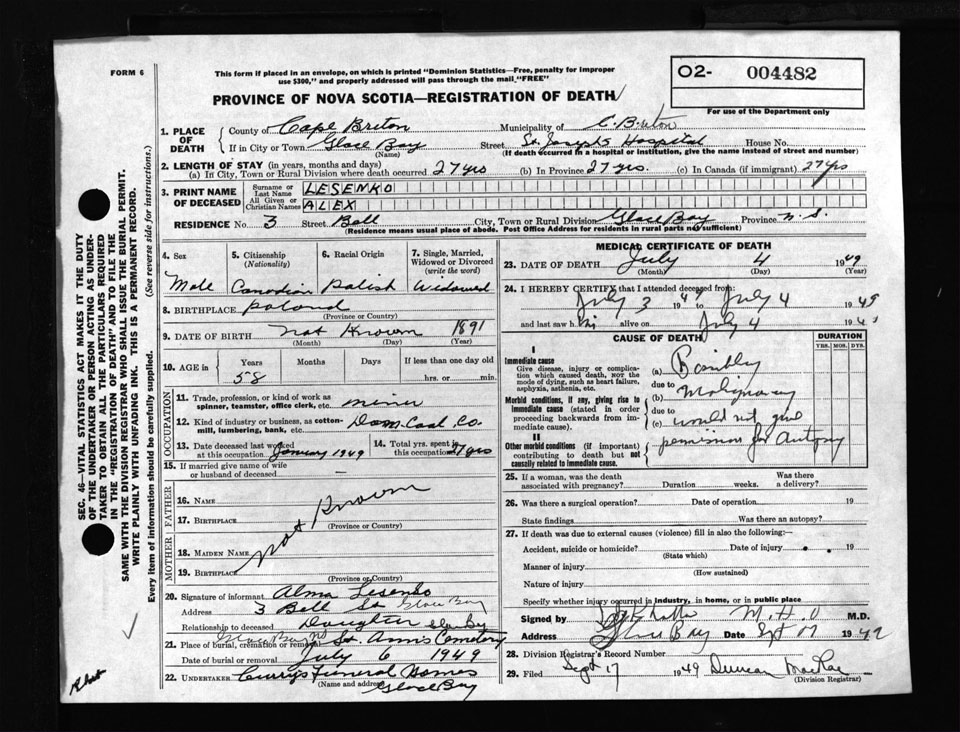 FORM 6
This form if placed in an envelope, on which is printed "Dominion Statistics—Free, penalty for improper
use $300," and properly addressed will pass through the mail "FREE"
O2- 004482
For use of the Department only
PROVINCE OF NOVA SCOTIA—REGISTRATION OF DEATH
SEC. 46—VITAL STATISTICS ACT MAKES IT THE DUTY
OF THE UNDERTAKER OR PERSON ACTING AS UNDER-
TAKER TO OBTAIN ALL THE PARTICULARS REQUIRED
IN THE "REGISTRATION OF DEATH" AND TO FILE THE
SAME WITH THE DIVISION REGISTRAR WHO SHALL ISSUE THE BURIAL PERMIT.
WRITE PLAINLY WITH UNFADING INK. THIS IS A PERMANENT RECORD.
Every item of information should be carefully supplied. (See reverse side for instructions.)
1. PLACE OF DEATH
County of Cape Breton Municipality of C. Breton
If in City or Town Glace Bay Street St. Josephs Hospital House No.
(Name) (If death occurred in a hospital or institution, give the name instead of street and number)
2. LENGTH OF STAY (in years, months and days)
(a) In City, Town or Rural Division where death occurred 27 yrs (b) In Province 27 yrs. (c) In Canada (if immigrant) 27 yrs
3. PRINT NAME OF DECEASED
Surname or Last Name LESENKO
All Given or Christian Names ALEX
RESIDENCE No. 3 Street Bell City, Town or Rural Division Glace Bay Province N.S.
(Residence means usual place of abode. Post Office Address for residents in rural parts not sufficient)
4. Sex 5. Citizenship (Nationality) 6. Racial Origin 7. Single, Married, Widowed or Divorced (write the word)
Male Canadian Polish Widowed
8. BIRTHPLACE Poland
(Province or Country)
9. DATE OF BIRTH Not Known 1891
(Month) (Day) (Year)
10. AGE in Years Months Days If less than one day old
58 hrs. or min.
OCCUPATION
11. Trade, profession, or kind of work as
spinner, teamster, office clerk, etc. miner
12. Kind of industry or business, as cotton-
mill, lumbering, bank, etc. Dom. Coal Co.
13. Date deceased last worked
at this occupation January 1949
14. Total yrs. spent in
this occupation 27 yrs
15. If married give name of wife
or husband of deceased
FATHER
16. NAME
17. BIRTHPLACE
(Province or Country)
not known
MOTHER
18. MAIDEN NAME
19. BIRTHPLACE
(Province or Country)
20. Signature of informant Alma Lesenko
Address 3 Bell St Glace Bay
Relationship to deceased Daughter
21. Place of burial, cremation or removal Glace Bay NS St. Anns Cemetery
Date of burial or removal July 6 1949
22. UNDERTAKER Currys Funeral Homes
(Name and address)
Glace Bay
MEDICAL CERTIFICATE OF DEATH
23. DATE OF DEATH July 4 1949
(Month) (Day) (Year)
24. I HEREBY CERTIFY that I attended deceased from:
July 3 1949 to July 4 1949
and last saw h im alive on July 4 194
CAUSE OF DEATH
DURATION
YRS. MOS. DYS.
I
Immediate cause
Give disease, injury or complica-
tion which caused death, NOT the
mode of dying, such as heart failure,
asphyxia, asthenia, etc.
Morbid conditions, if any, giving rise to
immediate cause (stated in order
proceeding backwards from imme-
diate cause).
II
Other morbid conditions (if important)
contributing to death but not
causally related to immediate cause.
(a) Possibly
due to
(b) Malignancy
due to
(c) would not give
permission for Autopsy
25. If a woman, was the death
associated with pregnancy? Duration weeks. Was there
a delivery?
26. Was there a surgical operation? Date of operation 19
State findings Was there an autopsy?
27. If death was due to external causes (violence) fill in also the following:—
Accident, suicide or homicide? Date of injury 19
(State which)
Manner of injury
(How sustained)
Nature of injury
Specify whether injury occurred in industry, in home, or in public place
Signed by M.H.O M.D.
Address Glace Bay Date Sept 17 1949
28. Division Registrar's Record Number
29. Filed Sept 17 1949 Duncan MacRae
(Division Registrar)